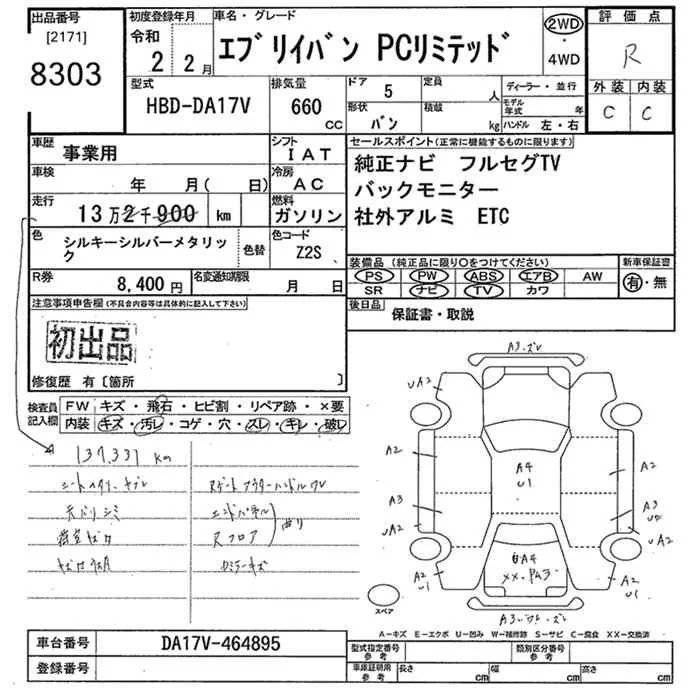 出品番号
[2171]
8303
初度登録年月
令和
2 2月
車名・グレード
エブリイバン PCリミテッド
2WD
・
4WD
評価点
R
外装 内装
C C
型式
HBD-DA17V
排気量
660
CC
ドア
5
定員
人
形状
バン
積載
kg
ディーラー・並行
モデル年式 年
ハンドル 左・右
車歴 事業用
シフト IAT
車検 年 月( 日)
冷房 AC
走行 13万2千900 km
燃料 ガソリン
色 シルキーシルバーメタリック
色替
色コード Z2S
R券 8,400円
名変通知期限 月 日
セールスポイント(正常に機能するものに限ります)
純正ナビ フルセグTV
バックモニター
社外アルミ ETC
装備品(純正品に限り〇をつけてください)
新車保証書
PS PW ABS エアB AW
SR ナビ TV カワ
有・無
後日品
保証書・取説
注意事項申告欄(不具合内容等は具体的に記入して下さい)
初出品
修復歴 有〔箇所 〕
検査員記入欄
FW キズ・飛石・ヒビ割・リペア跡・×要
内装 キズ・汚レ・コゲ・穴・スレ・キレ・破レ
137,331 km
天バリシミ
エンドパネル
Rフロア
曲り
A3・ズレ
UA2
UA2
A2
A2
A4
U1
A3
A3
UA2
UA2
A2
U1
A2
U1
スペア
A-キズ E-エクボ U-凹み W-補修跡 S-サビ C-腐食 XX-交換済
車台番号 DA17V-464895
登録番号
型式指定番号 参考
類別区分番号 参考
車庫証明用 参考
長さ cm
幅 cm
高さ cm